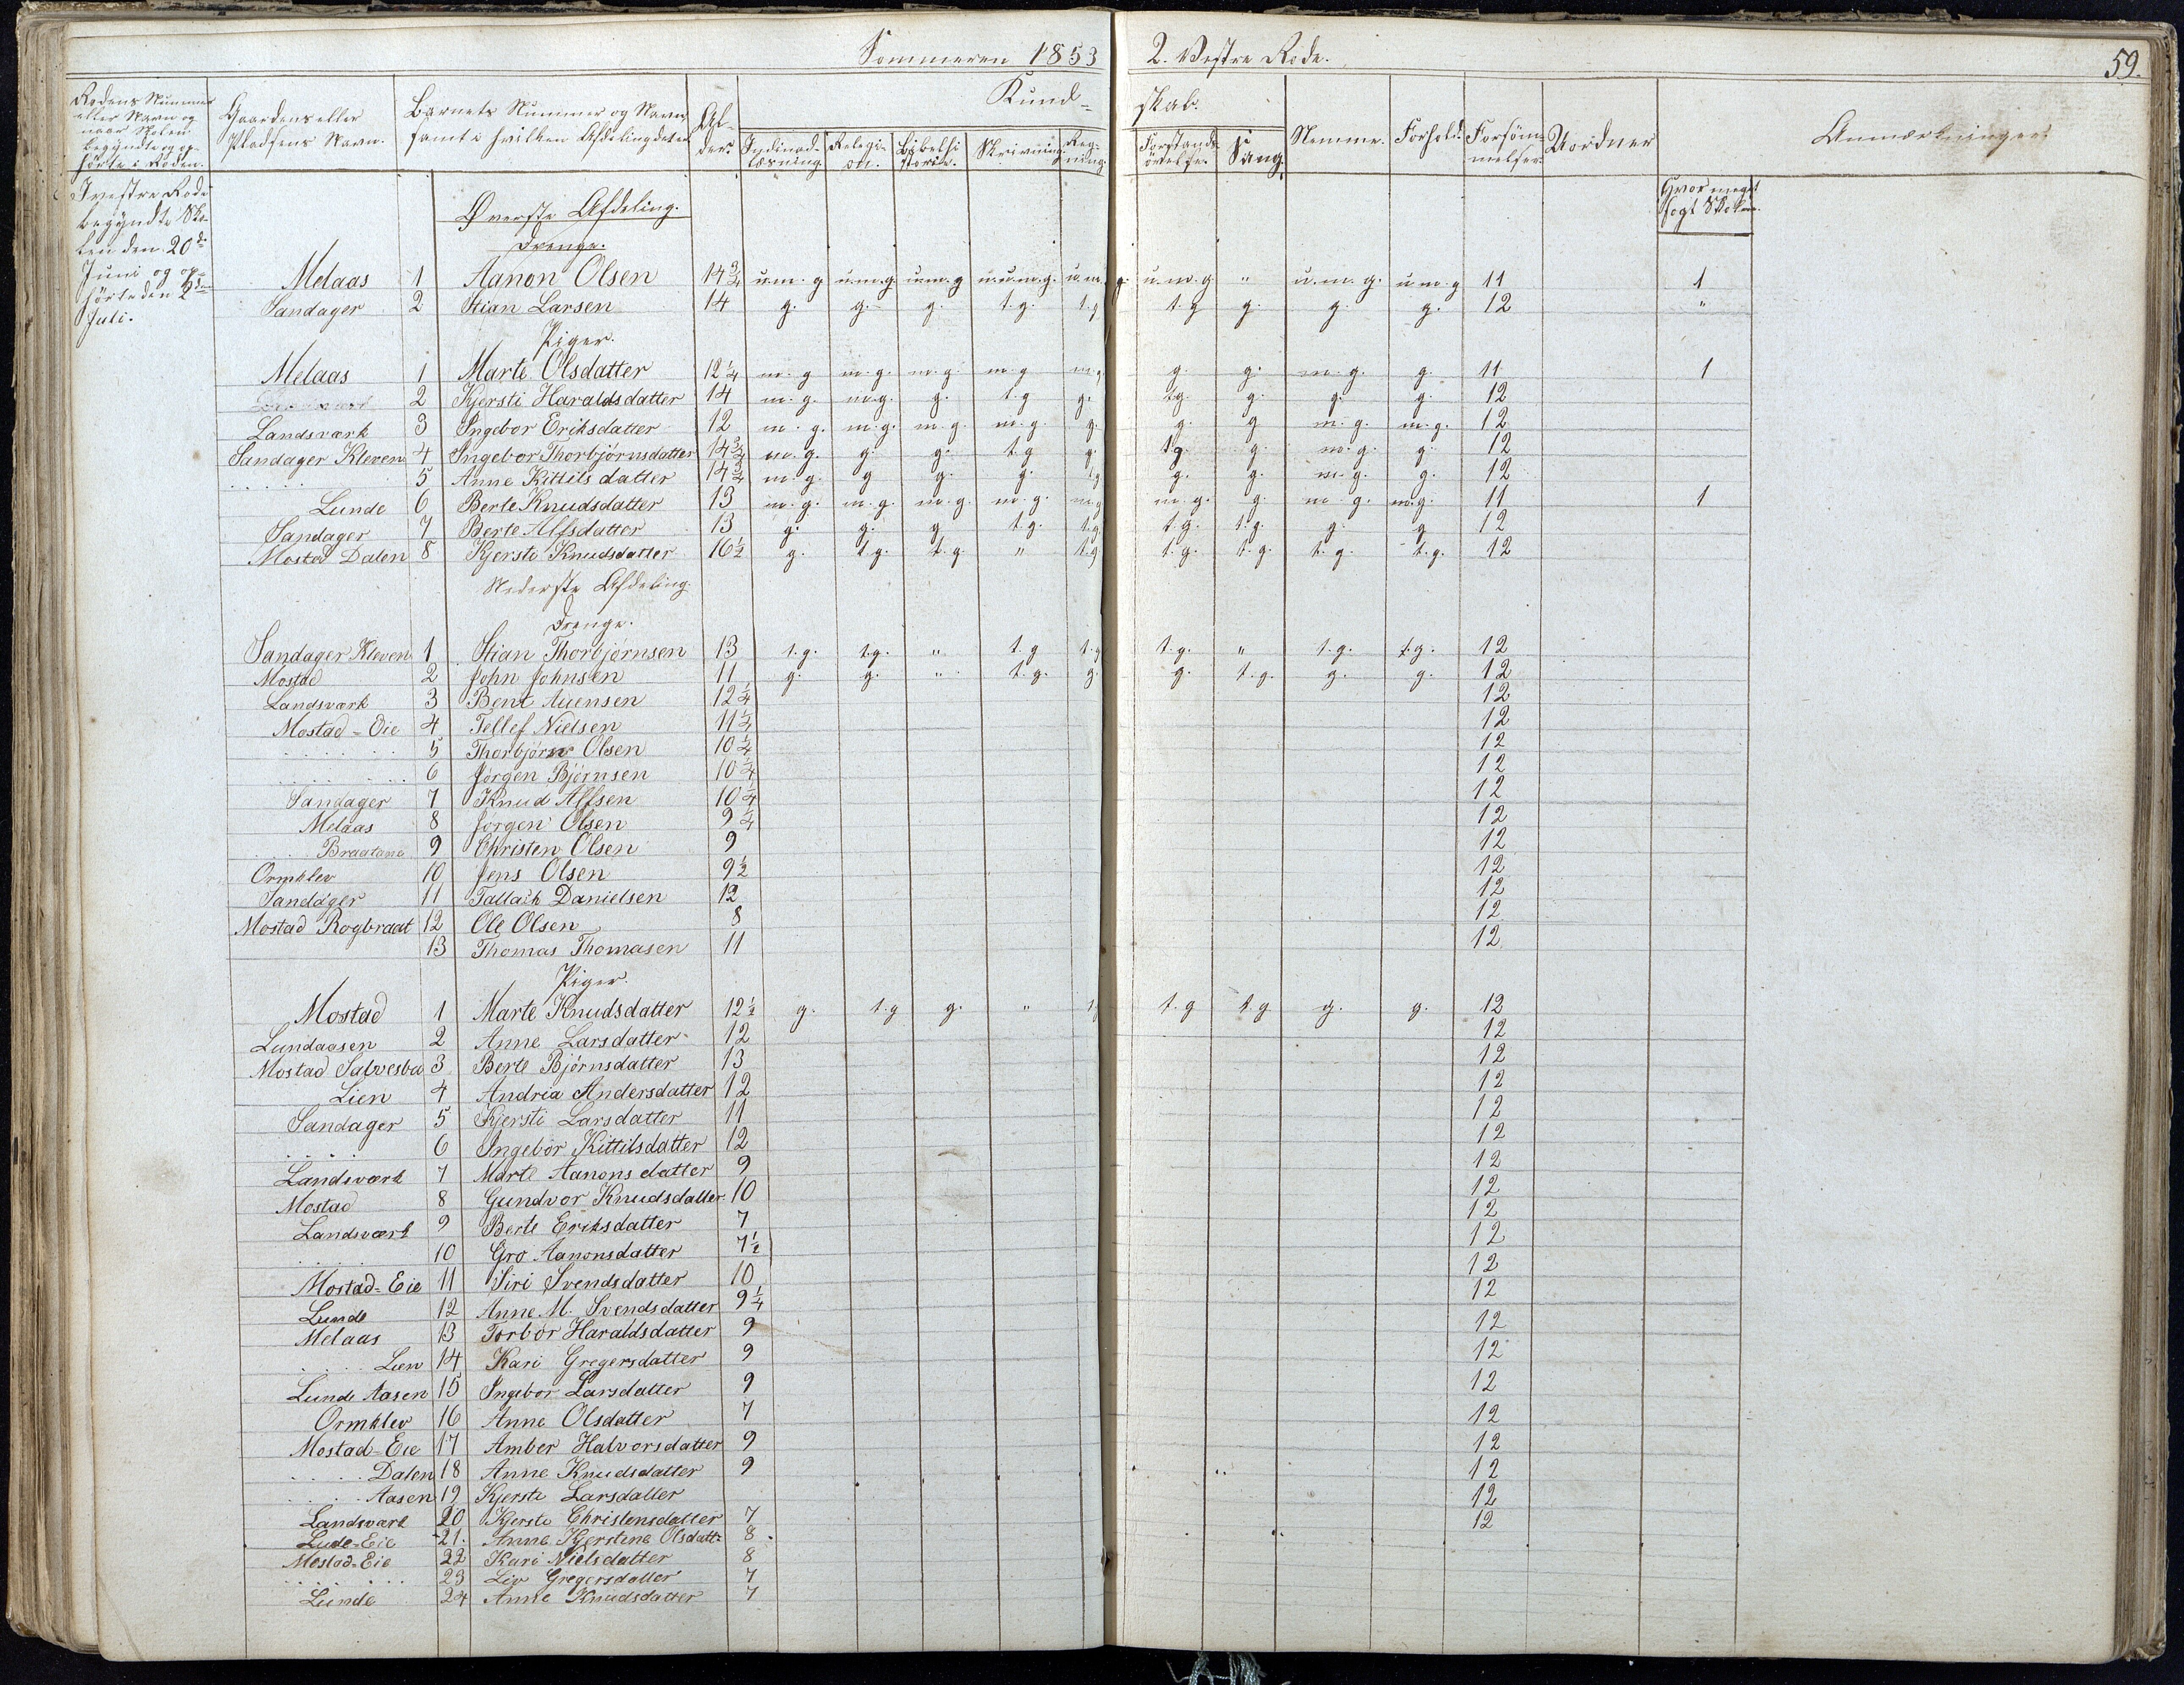 Sommeren 1853 2. Vestre Rode. 59.
Rodens Nummer eller Navn og naar Skolen begyndte og ophörte i Roden.
Gaardens eller Pladsens Navn.
Barnets Nummer og Navn, samt i hvilken Afdeling det er
Alder.
Kundskab.
Indinad-læsning. Religion. Bibelhistorie. Skrivning. Regning. Forstandsövelse. Sang.
Nemme. Forhold. Forsömmelser. Uordner Anmærkninger.
Hvor meget sögt Skolen.
I vestre Rode begyndte Skolen den 20de Juni og ophörte den 2den Juli.
Överste Afdeling.
Drenge.
Melaas 1 Aanon Olsen 14 3/4 u.m.g u.m.g u.m.g u.m.g. u.m.g. u.m.g " u.m.g. u.m.g 11 1
Sandager 2 Stian Larsen 14 g. g. g. t.g. t.g t.g g. g. g. 12 "
Piger.
Melaas 1 Marte Olsdatter 12 1/4 m.g m.g. m.g m.g m.g g. g. m.g. g. 11 1
2 Kjersti Haraldsdatter 14 m.g. m.g. g. t.g g. t.g. g. g. g. 12
Landsværk 3 Ingebor Eriksdatter 12 m.g. m.g. m.g. m.g. g. g. g m.g. m.g. 12
Sandager Kleven 4 Ingebor Thorbjörnsdatter 14 3/4 m.g. g. g. t.g g. t.g. g. m.g. g. 12
. . . . . 5 Anne Kittilsdatter 14 3/4 m.g. g g. g. t.g g. g. m.g. g. 12
Lunde 6 Berte Knudsdatter 13 m.g. m.g. m.g. m.g. m.g m.g. g. m.g. m.g. 11 1
Sandager 7 Berte Alfsdatter 13 g. g. g t.g. t.g t.g. t.g. g. g 12
Mostad Dalen 8 Kjersti Knudsdatter 16 1/2 g. t.g. t.g. " t.g t.g. t.g. t.g. t.g. 12
Nederste Afdeling.
Drenge.
Sandager Kleven 1 Stian Thorbjörnsen 13 t.g. t.g. " t.g t.g t.g. " t.g. t.g. 12
Mostad 2 John Johnsen 11 g. g. " t.g. g. g. t.g. g. g. 12
Landsværk 3 Bent Auensen 12 1/4 12
Mostad-Eie 4 Tellef Nielsen 11 1/4 12
. . . . . 5 Thorbjörn Olsen 10 1/4 12
. . . . . 6 Jörgen Björnsen 10 1/4 12
Sandager 7 Knud Alfsen 10 1/4 12
Melaas 8 Jörgen Olsen 9 1/4 12
Braatane 9 Christen Olsen 9 12
Ormklev 10 Jens Olsen 9 1/2 12
Sandager 11 Tallak Danielsen 12 12
Mostad Rogbraat 12 Ole Olsen 8 12
13 Thomas Thomasen 11 12
Piger.
Mostad 1 Marte Knudsdatter 12 1/2 g. t.g g. " t.g t.g t.g g. g. 12
Lundaasen 2 Anne Larsdatter 12 12
Mostad Salvesbu 3 Berte Björnsdatter 13 12
Lien 4 Andria Andersdatter 12 12
Sandager 5 Kjersti Larsdatter 11 12
. . . . 6 Ingebor Kittilsdatter 12 12
Landsværk 7 Marte Aanonsdatter 9 12
Mostad 8 Gundvor Knudsdatter 10 12
Landsværk 9 Berte Eriksdatter 7 12
. . . . 10 Gro Aanonsdatter 7 1/2 12
Mostad-Eie 11 Siri Svendsdatter 10 12
Lunde 12 Anne M. Svendsdatter 9 1/4 12
Melaas 13 Torbor Haraldsdatter 9 12
. . . . Lien 14 Kari Gregersdatter 9 12
Lunde Aasen 15 Ingebor Larsdatter 9 12
Ormklev 16 Anne Olsdatter 7 12
Mostad-Eie 17 Amber Halvorsdatter 9 12
. . . . Dalen 18 Anne Knudsdatter 9 12
. . . . Aasen 19 Kjersti Larsdatter 12
Landsværk 20 Kjersti Christensdatter 7 12
Lude-Eie 21. Anne Kjerstine Olsdatt: 8
Mostad-Eie 22 Kari Nielsdatter 8
. . . . . 23 Liv Gregersdatter 7
Lunde 24 Anne Knudsdatter 7